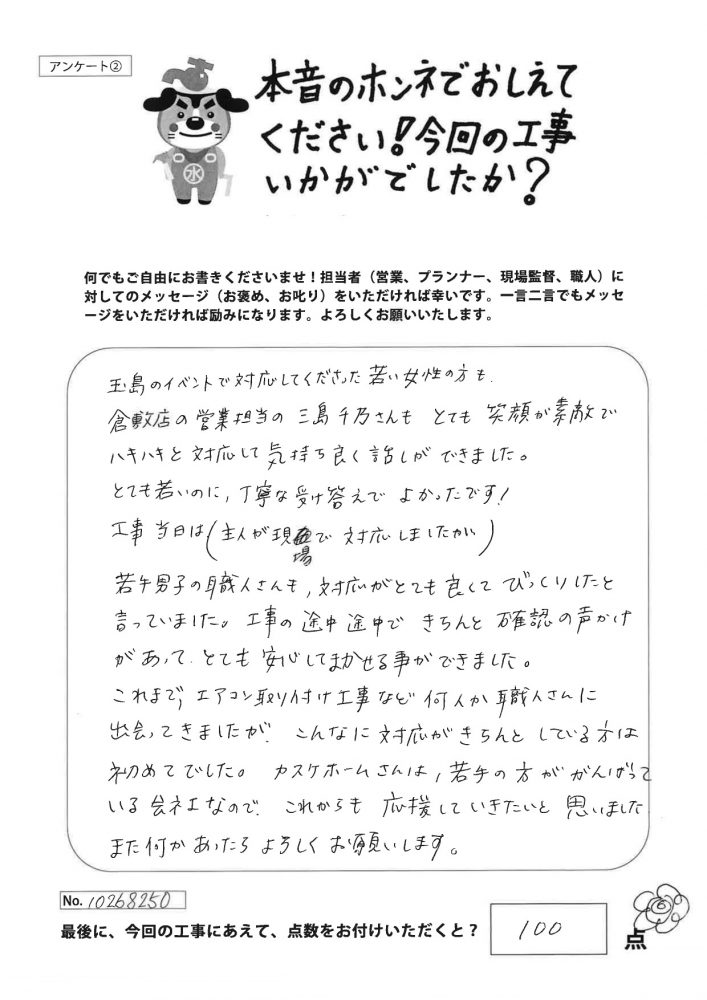 アンケート②
本音のホンネでおしえて
ください!今回の工事
いかがでしたか?
水
何でもご自由にお書きくださいませ!担当者(営業、プランナー、現場監督、職人)に
対してのメッセージ(お褒め、お叱り)をいただければ幸いです。一言二言でもメッセ
ージをいただければ励みになります。よろしくお願いいたします。
玉島のイベントで対応してくださった若い女性の方も、
倉敷店の営業担当の三島千乃さんも とても 笑顔が素敵で
ハキハキと対応して気持ち良く話しができました。
とても若いのに、丁寧な受け答えで よかったです!
工事当日は(主人が現場で 対応しましたが)
若手男子の職人さんも、対応がとても良くて びっくりしたと
言っていました。工事の途中途中で きちんと 確認の声かけ
があって、とても 安心してまかせる事ができました。
これまで、エアコン取り付け工事など 何人か職人さんに
出会ってきましたが、こんなに 対応がきちんと している方は
初めてでした。カスケホームさんは、若手の方が がんばって
いる会社なので、これからも 応援していきたいと 思いました
また何かあったらよろしくお願いします。
No. 10268250
最後に、今回の工事にあえて、点数をお付けいただくと? 100 点